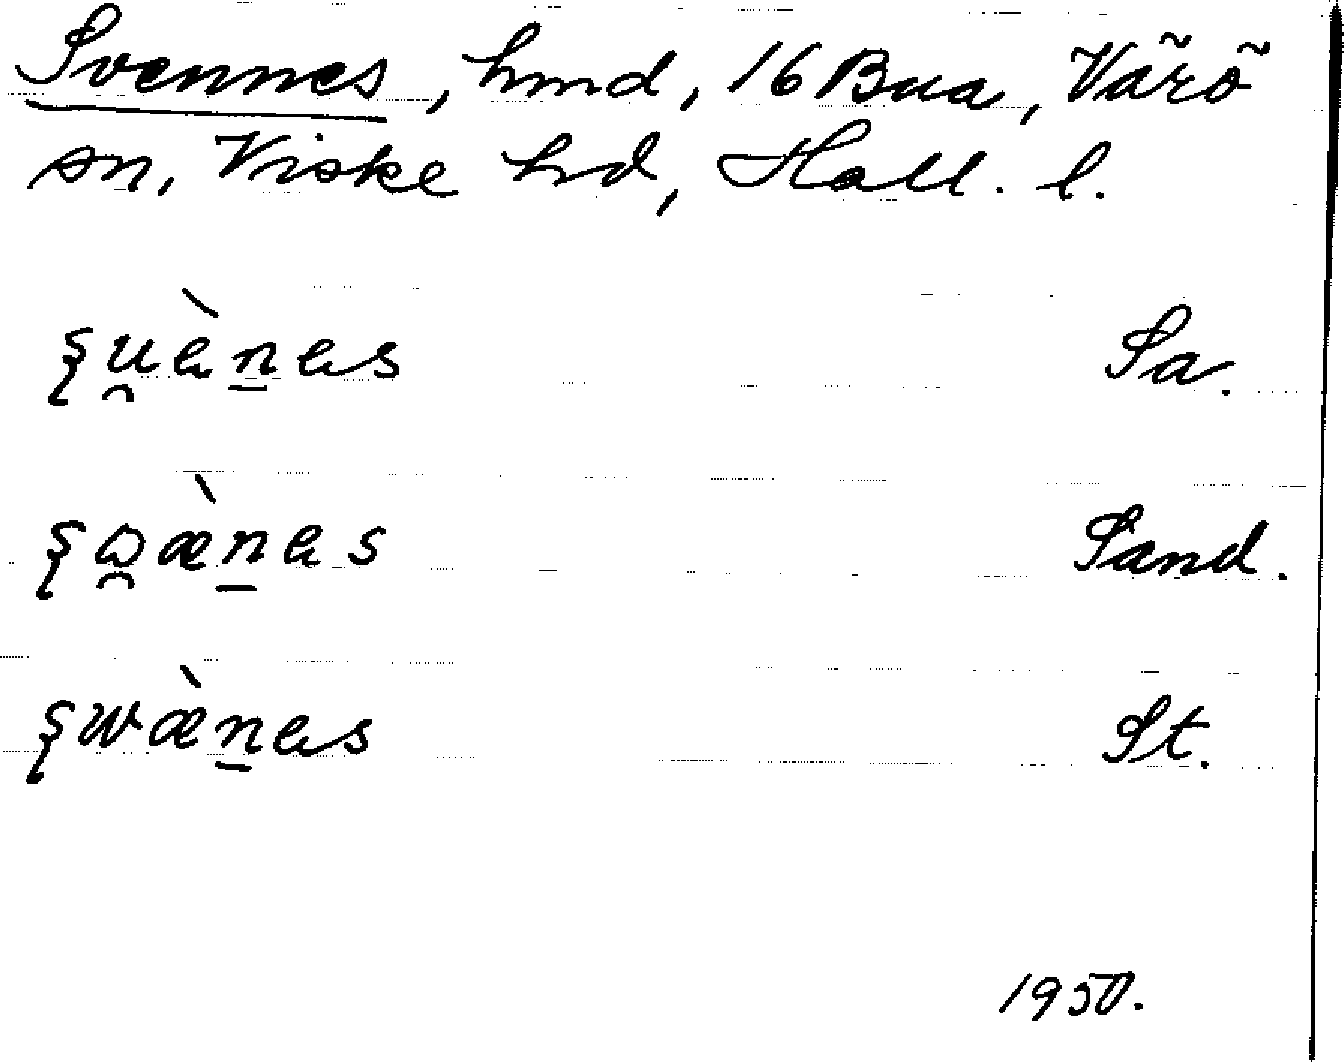 Svennes, hmd, 16 Bua, Värö
sn, Viske hd, Hall. l.
ʂu̯ènes Sa.
Sand.
ʂwæ̀nes St.
1950.